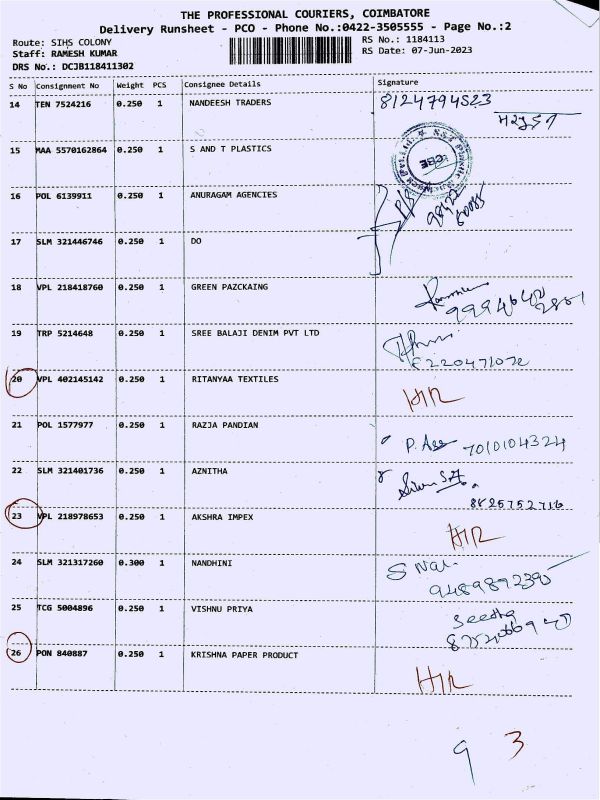 THE PROFESSIONAL COURIERS, COIMBATORE
Delivery Runsheet - PCO - Phone No.:0422-3505555 - Page No.:2
Route: SIHS COLONY
Staff: RAMESH KUMAR
DRS No.: DCJB118411302
RS No.: 1184113
RS Date: 07-Jun-2023
S No Consignment No Weight PCS Consignee Details Signature
14 TEN 7524216 0.250 1 NANDEESH TRADERS 8124794523
15 MAA 5570162864 0.250 1 S AND T PLASTICS
16 POL 6139911 0.250 1 ANURAGAM AGENCIES
17 SLM 321446746 0.250 1 DO
18 VPL 218418760 0.250 1 GREEN PAZCKAING
19 TRP 5214648 0.250 1 SREE BALAJI DENIM PVT LTD
20 VPL 402145142 0.250 1 RITANYAA TEXTILES HIR
21 POL 1577977 0.250 1 RAZJA PANDIAN 7010104324
22 SLM 321401736 0.250 1 AZNITHA
8825752716
23 VPL 218978653 0.250 1 AKSHRA IMPEX HIR
24 SLM 321317260 0.300 1 NANDHINI
9489892390
25 TCG 5004896 0.250 1 VISHNU PRIYA Seetha
26 PON 840887 0.250 1 KRISHNA PAPER PRODUCT HIR
9 3